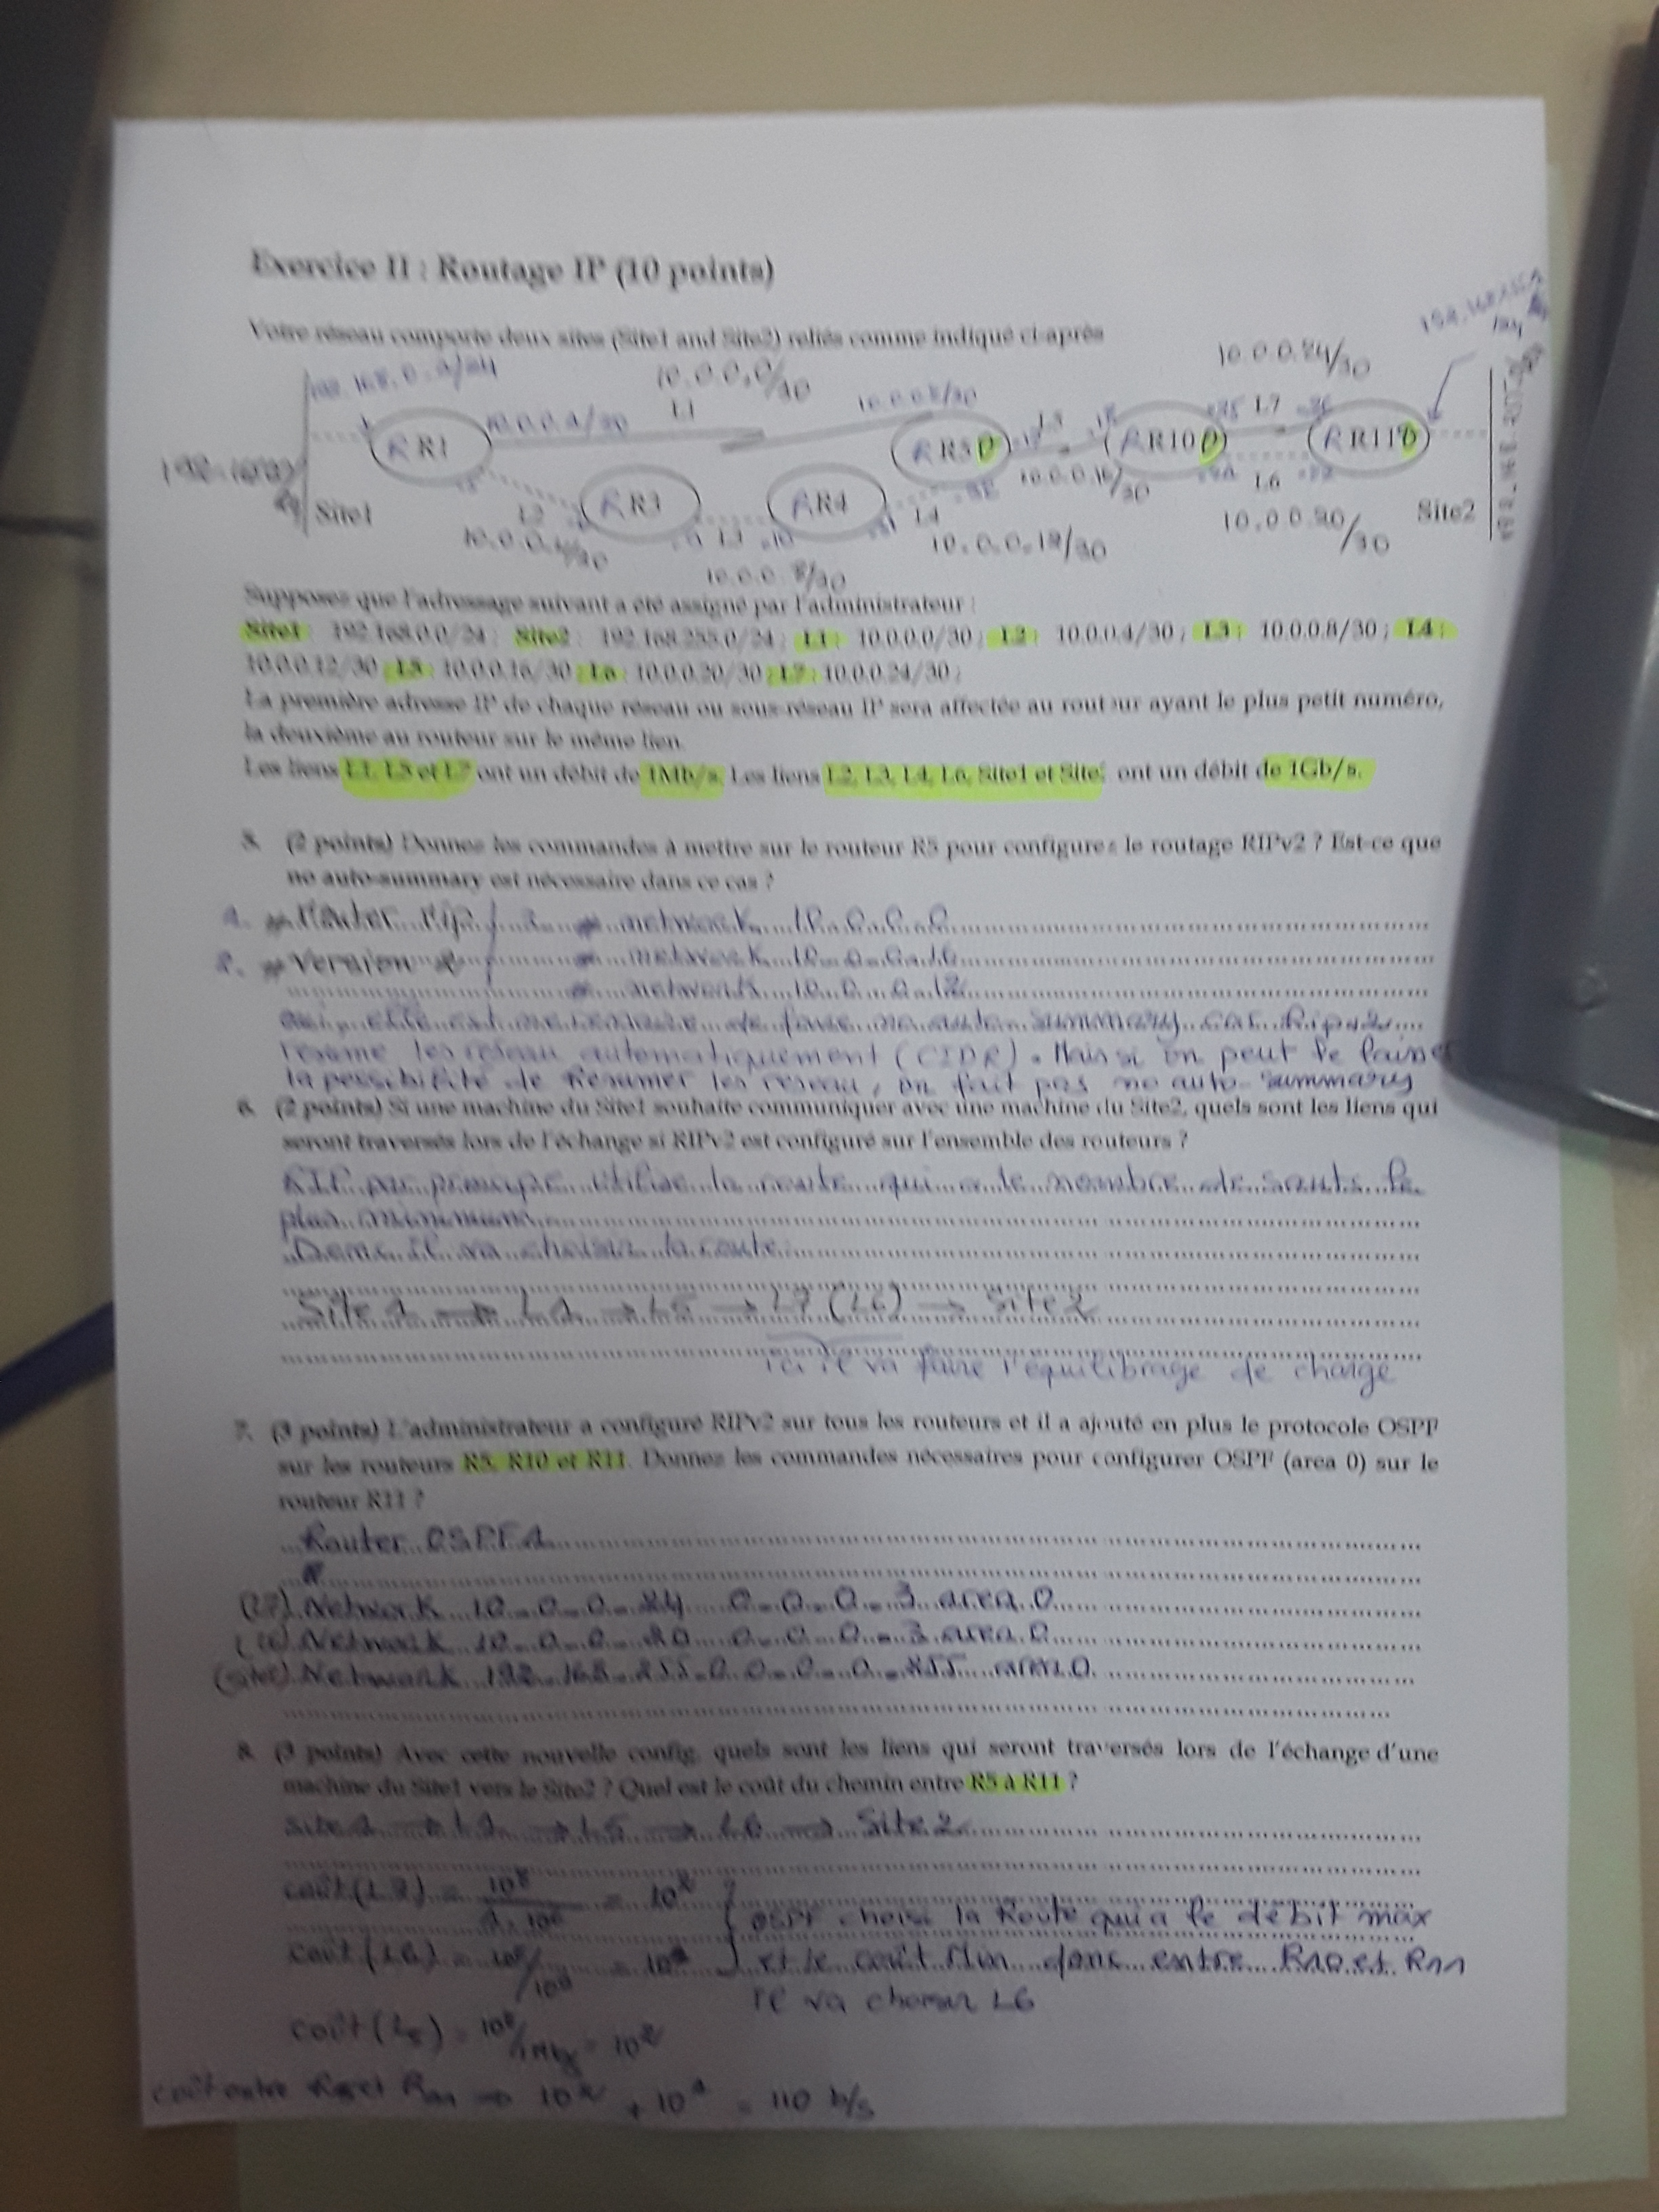 Exercice II : Routage IP (10 points)
Votre réseau comporte deux sites (Site1 and Site2) reliés comme indiqué ci-après
10.0.0.0/30
10.0.0.24/30
L1
L7
R R1
R R5
R R10
R R11
R R3
R R4
L6
L4
10.0.0.16/30
Site1
Site2
10.0.0.20/30
10.0.0.8/30
Supposez que l'adressage suivant a été assigné par l'administrateur :
Site1 : 192.168.0.0/24 ; Site2 : 192.168.255.0/24 ; L1 : 10.0.0.0/30 ; L2 : 10.0.0.4/30 ; L3 : 10.0.0.8/30 ; L4 :
10.0.0.12/30 ; L5 : 10.0.0.16/30 ; L6 : 10.0.0.20/30 ; L7 : 10.0.0.24/30 ;
La première adresse IP de chaque réseau ou sous-réseau IP sera affectée au routeur ayant le plus petit numéro,
la deuxième au routeur sur le même lien.
Les liens L1, L5 et L7 ont un débit de 1Mb/s. Les liens L2, L3, L4, L6, Site1 et Site2 ont un débit de 1Gb/s.
5. (2 points) Donnez les commandes à mettre sur le routeur R5 pour configurer le routage RIPv2 ? Est-ce que
no auto-summary est nécessaire dans ce cas ?
1. # Router rip 3. # network 10.0.0.0
2. # Version 2 # network 10.0.0.16
# network 10.0.0.12
oui, elle est necessaire de faire no auto-summary car Ripv2
résume les réseau automatiquement (CIDR). Mais si on peut le laisser
la possibilité de Résumer les reseau, on fait pas no auto-summary
6. (2 points) Si une machine du Site1 souhaite communiquer avec une machine du Site2, quels sont les liens qui
seront traversés lors de l'échange si RIPv2 est configuré sur l'ensemble des routeurs ?
RIP par principe utilise la route qui a le nombre de sauts le
plus minimum.
Donc il va choisir la route :
Site 1 → L1 → L5 → L7 (L6) → Site 2
ici il va faire l'équilibrage de charge
7. (3 points) L'administrateur a configuré RIPv2 sur tous les routeurs et il a ajouté en plus le protocole OSPF
sur les routeurs R5, R10 et R11. Donnez les commandes nécessaires pour configurer OSPF (area 0) sur le
routeur R11 ?
Router OSPF 1
(L7) Network 10.0.0.24 0.0.0.3 area 0
(L6) Network 10.0.0.20 0.0.0.3 area 0
(Site2) Network 192.168.255.0 0.0.0.255 area 0
8. (3 points) Avec cette nouvelle config, quels sont les liens qui seront traversés lors de l'échange d'une
machine du Site1 vers le Site2 ? Quel est le coût du chemin entre R5 à R11 ?
Site 1 → L1 → L5 → L6 → Site 2
coût (L7) = 10⁸ / 1.10⁶ = 10² } OSPF choisi la Route qui a le débit max
coût (L6) = = 10¹ et le coût Min donc entre R10 et R11
il va choisir L6
coût (L5) = 10⁸/1Mb/s = 10²
coût entre R5 et R11 → 10² + 10¹ = 110 b/s